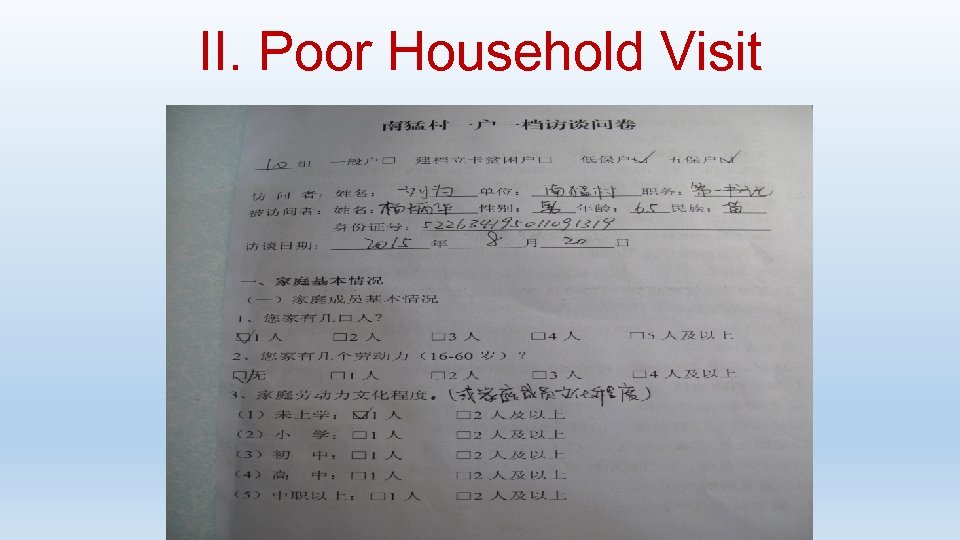 II. Poor Household Visit
南猛村一户一档访谈问卷
10 组 一般户□ 建档立卡贫困户□ 低保户☑ 五保户☑
访问者：姓名： 单位：南猛村 职务：第一书记
被访问者：姓名：杨 华 性别：男 年龄：65 民族：苗
身份证号：522634195011091319
访谈日期：2015 年 8 月 20 日
一、家庭基本情况
（一）家庭成员基本情况
1、您家有几口人？
☑1人 □2人 □3人 □4人 □5人及以上
2、您家有几个劳动力（16-60 岁）？
☑无 □1人 □2人 □3人 □4人及以上
3、家庭劳动力文化程度。（或家庭成员文化程度）
（1）未上学：☑1人 □2人及以上
（2）小 学：□1人 □2人及以上
（3）初 中：□1人 □2人及以上
（4）高 中：□1人 □2人及以上
（5）中职以上：□1人 □2人及以上